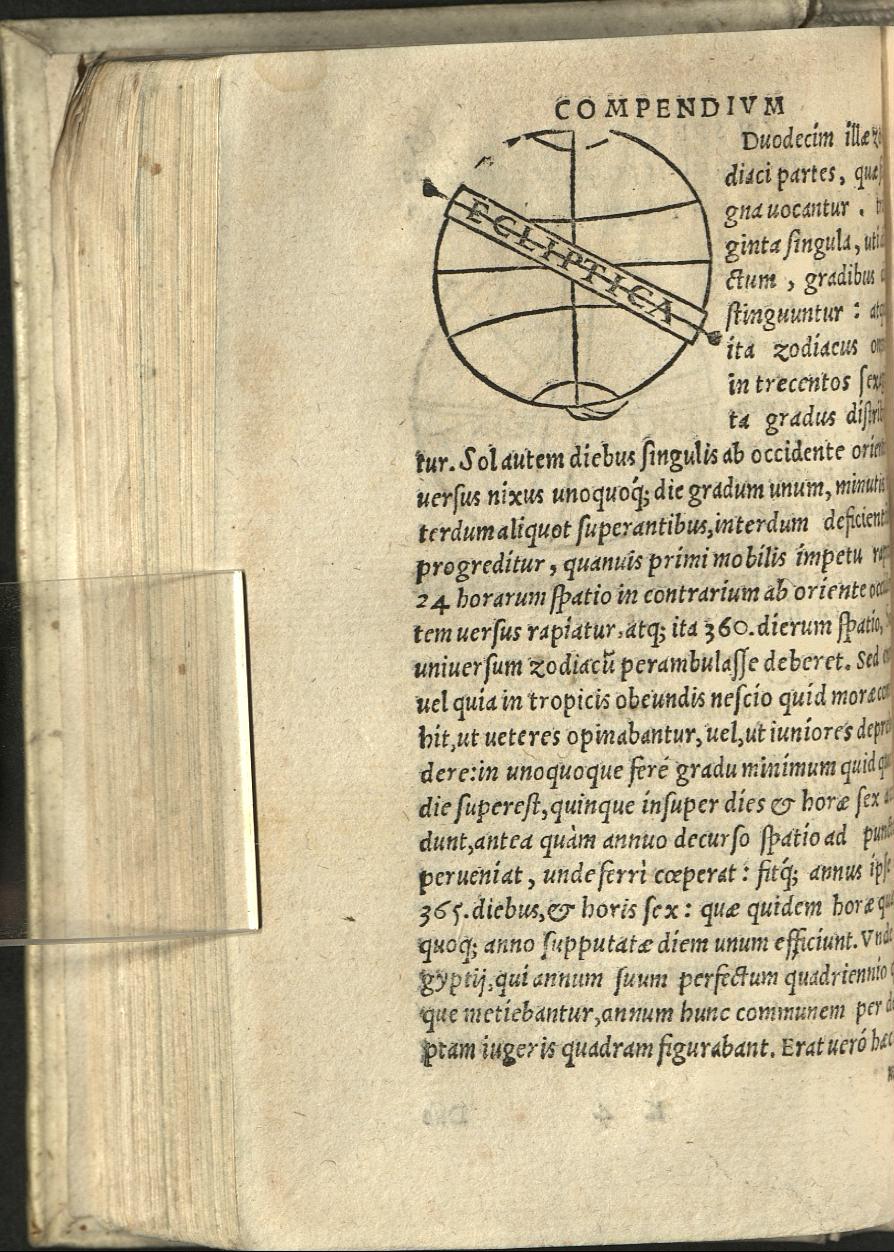 COMPENDIVM
ECLIPTICA
Duodecim illæ
diaci partes, quæ
gna uocantur.
ginta ſingula, uti
ctum, gradibus
ſtinguuntur: atq
ita zodiacus
in trecentos ſex
ta gradus diſtrib
tur. Sol autem diebus ſingulis ab occidente orien
uerſus nixus unoquoq́; die gradum unum, minutis
terdum aliquot ſuperantibus, interdum deficient
progreditur, quanuis primi mobilis impetu
24 horarum ſpatio in contrarium ab oriente
tem uerſus rapiatur, atq; ita 360. dierum ſpatio,
uniuerſum zodiacū perambulaſſe deberet. Sed
uel quia in tropicis obeundis neſcio quid moræ
hit, ut ueteres opinabantur, uel, ut iuniores depre
dere: in unoquoque ferè gradu minimum quid
die ſupereſt, quinque inſuper dies & horæ ſex
dunt, antea quàm annuo decurſo ſpatio ad pun
perueniat, unde ferri cœperat: fitq́; annus ipſe
365. diebus, & horis ſex: quæ quidem horæ
quoq; anno ſupputatæ diem unum efficiunt. Vnde
gyptij, qui annum ſuum perfectum quadriennio
que metiebantur, annum hunc communem per
ptam iugeris quadram figurabant. Erat ueró hæc